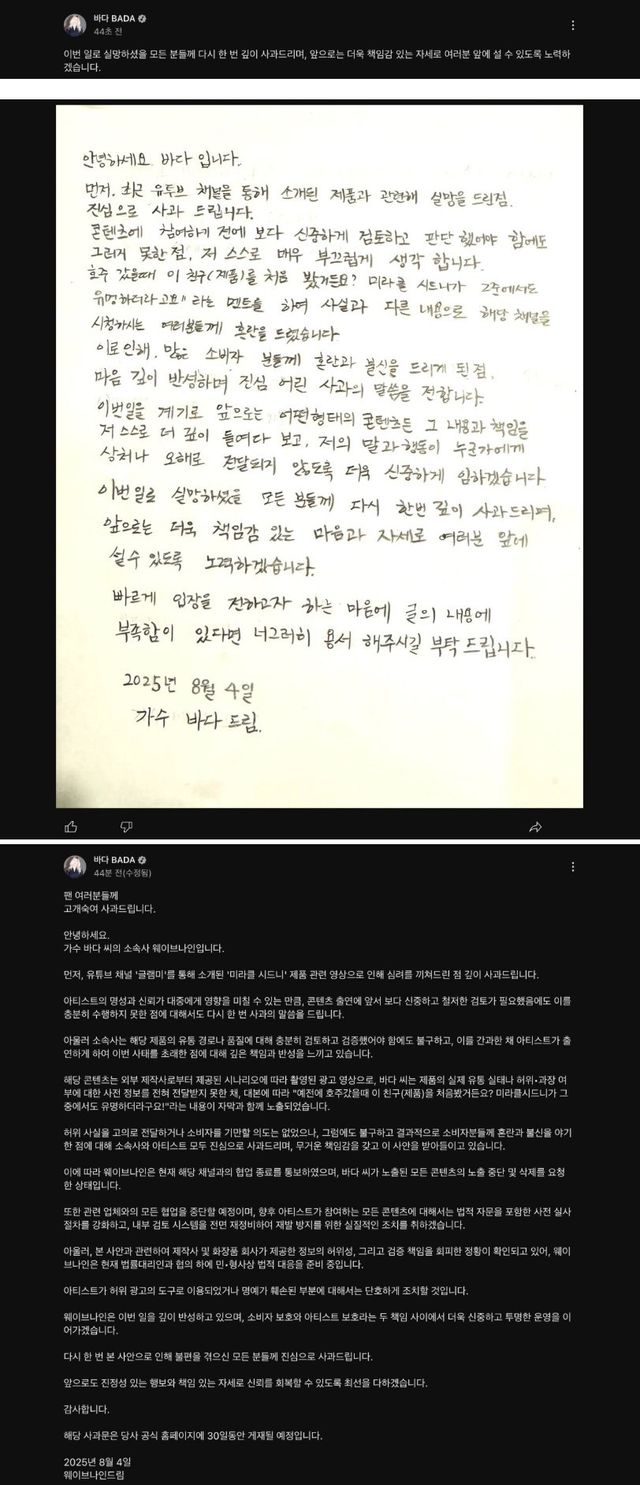 바다 BADA
44초 전
이번 일로 실망하셨을 모든 분들께 다시 한 번 깊이 사과드리며, 앞으로는 더욱 책임감 있는 자세로 여러분 앞에 설 수 있도록 노력하
겠습니다.
안녕하세요 바다 입니다.
먼저, 최근 유투브 채널을 통해 소개된 제품과 관련해 실망을 드린점.
진심으로 사과 드립니다.
콘텐츠에 참여하기 전에 보다 신중하게 검토하고 판단 했어야 함에도
그러지 못한점, 저 스스로 매우 부끄럽게 생각 합니다.
호주 갔을때 이 친구(제품)를 처음 봤거든요? 미라클 시드니가 그중에서도
유명하더라고요" 라는 멘트를 하여 사실과 다른 내용으로 해당 채널을
시청하시는 여러분들께 혼란을 드렸습니다
이로인해, 많은 소비자 분들께 혼란과 불신을 드리게 된점,
마음 깊이 반성하며 진심 어린 사과의 말씀을 전합니다.
이번일을 계기로 앞으로는 어떤형태의 콘텐츠든 그 내용과 책임을
저 스스로 더 깊이 들여다 보고, 저의 말과행동이 누군가에게
상처나 오해로 전달되지 않도록 더욱 신중하게 임하겠습니다
이번일로 실망하셨을 모든 분들께 다시 한번 깊이 사과드리며,
앞으로는 더욱 책임감 있는 마음과 자세로 여러분 앞에
설수 있도록 노력하겠습니다.
빠르게 입장을 전하고자 하는 마음에 글의 내용에
부족함이 있다면 너그러히 용서 해주시길 부탁드립니다.
2025년 8월 4일
가수 바다 드림.
바다 BADA
44분 전(수정됨)
팬 여러분들께
고개숙여 사과드립니다.
안녕하세요.
가수 바다 씨의 소속사 웨이브나인입니다.
먼저, 유튜브 채널 '글램미'를 통해 소개된 '미라클 시드니' 제품 관련 영상으로 인해 심려를 끼쳐드린 점 깊이 사과드립니다.
아티스트의 명성과 신뢰가 대중에게 영향을 미칠 수 있는 만큼, 콘텐츠 출연에 앞서 보다 신중하고 철저한 검토가 필요했음에도 이를
충분히 수행하지 못한 점에 대해서도 다시 한 번 사과의 말씀을 드립니다.
아울러 소속사는 해당 제품의 유통 경로나 품질에 대해 충분히 검토하고 검증했어야 함에도 불구하고, 이를 간과한 채 아티스트가 출
연하게 하여 이번 사태를 초래한 점에 대해 깊은 책임과 반성을 느끼고 있습니다.
해당 콘텐츠는 외부 제작사로부터 제공된 시나리오에 따라 촬영된 광고 영상으로, 바다 씨는 제품의 실제 유통 실태나 허위•과장 여
부에 대한 사전 정보를 전혀 전달받지 못한 채, 대본에 따라 "예전에 호주갔을때 이 친구(제품)을 처음봤거든요? 미라클시드니가 그
중에서도 유명하더라구요!"라는 내용이 자막과 함께 노출되었습니다.
허위 사실을 고의로 전달하거나 소비자를 기만할 의도는 없었으나, 그럼에도 불구하고 결과적으로 소비자분들께 혼란과 불신을 야기
한 점에 대해 소속사와 아티스트 모두 진심으로 사과드리며, 무거운 책임감을 갖고 이 사안을 받아들이고 있습니다.
이에 따라 웨이브나인은 현재 해당 채널과의 협업 종료를 통보하였으며, 바다 씨가 노출된 모든 콘텐츠의 노출 중단 및 삭제를 요청
한 상태입니다.
또한 관련 업체와의 모든 협업을 중단할 예정이며, 향후 아티스트가 참여하는 모든 콘텐츠에 대해서는 법적 자문을 포함한 사전 실사
절차를 강화하고, 내부 검토 시스템을 전면 재정비하여 재발 방지를 위한 실질적인 조치를 취하겠습니다.
아울러, 본 사안과 관련하여 제작사 및 화장품 회사가 제공한 정보의 허위성, 그리고 검증 책임을 회피한 정황이 확인되고 있어, 웨이
브나인은 현재 법률대리인과 협의 하에 민•형사상 법적 대응을 준비 중입니다.
아티스트가 허위 광고의 도구로 이용되었거나 명예가 훼손된 부분에 대해서는 단호하게 조치할 것입니다.
웨이브나인은 이번 일을 깊이 반성하고 있으며, 소비자 보호와 아티스트 보호라는 두 책임 사이에서 더욱 신중하고 투명한 운영을 이
어가겠습니다.
다시 한 번 본 사안으로 인해 불편을 겪으신 모든 분들께 진심으로 사과드립니다.
앞으로도 진정성 있는 행보와 책임 있는 자세로 신뢰를 회복할 수 있도록 최선을 다하겠습니다.
감사합니다.
해당 사과문은 당사 공식 홈페이지에 30일동안 게재될 예정입니다.
2025년 8월 4일
웨이브나인드림